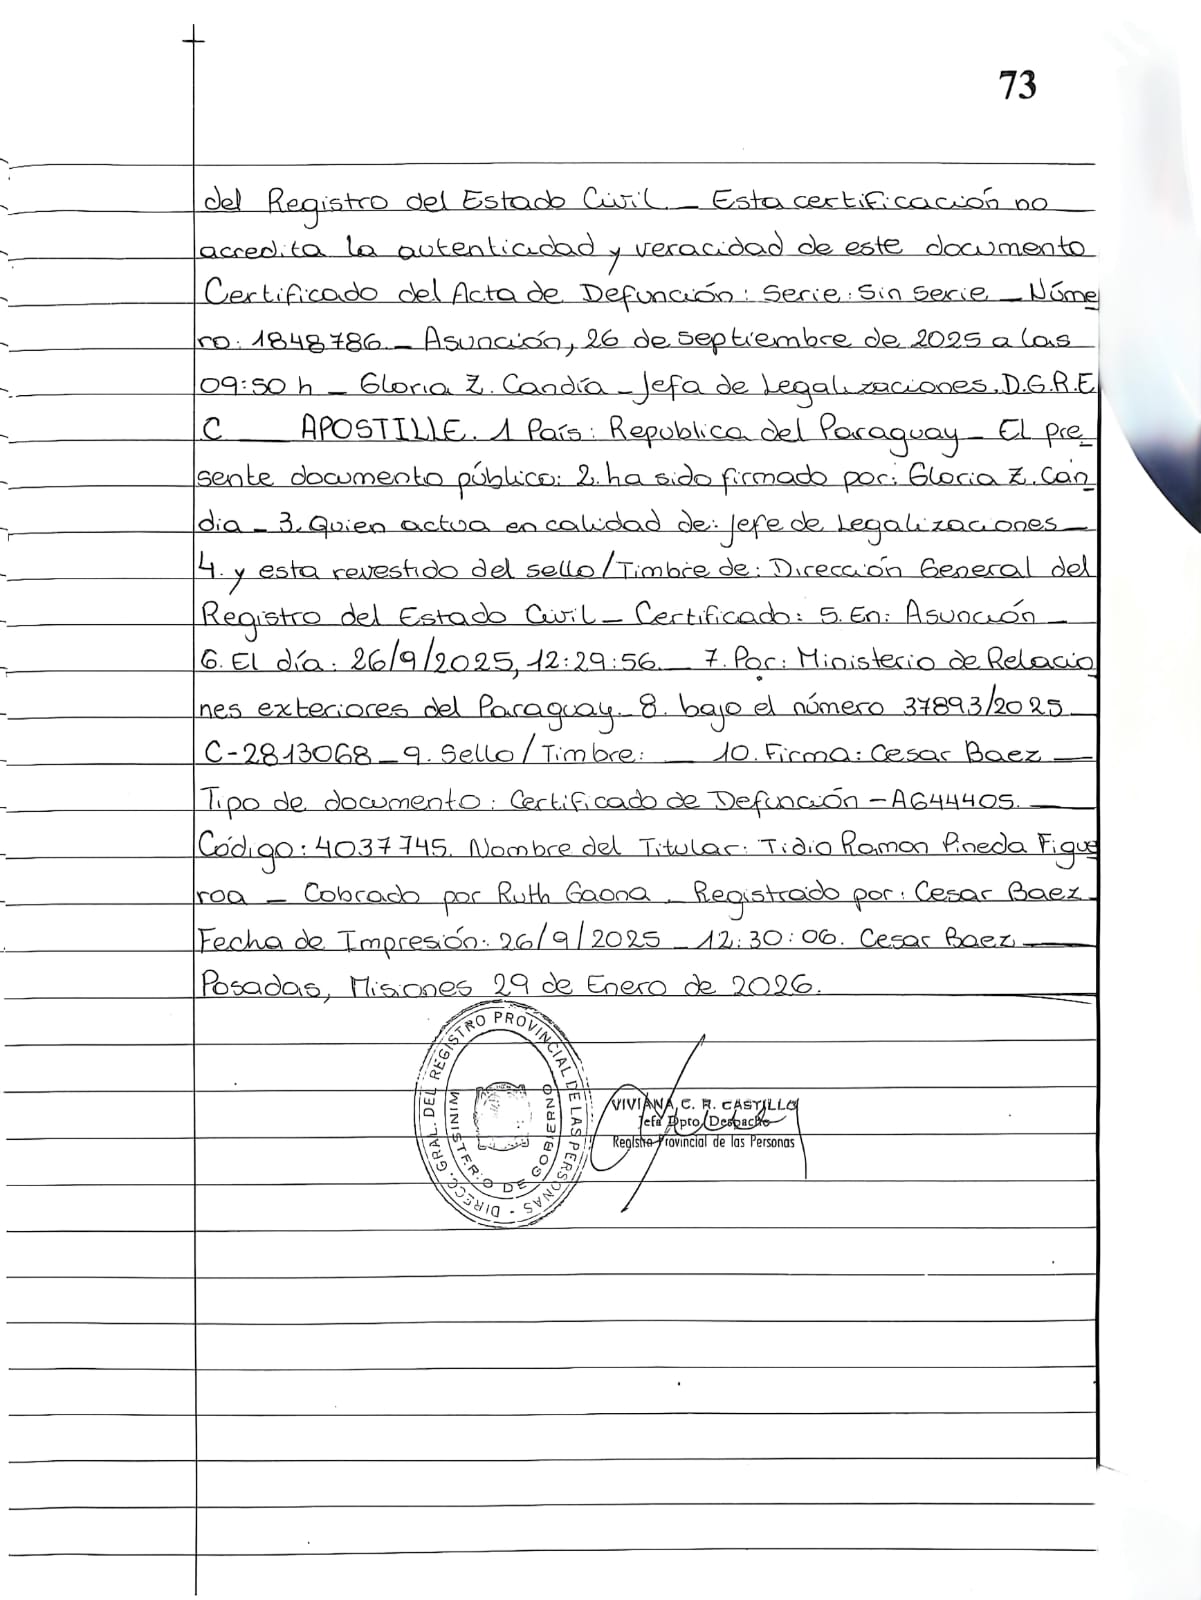 73
del Registro del Estado Civil._ Esta certificación no
acredita la autenticidad y veracidad de este documento
Certificado del Acta de Defunción: Serie: Sin Serie _ Núme
ro: 1848786._ Asunción, 26 de septiembre de 2025 a las
09:50 h _ Gloria Z. Candia _ Jefa de Legalizaciones. D.G.R.E
.C ___ APOSTILLE. 1 País: Republica del Paraguay _ El pre
sente documento público: 2. ha sido firmado por: Gloria Z. Can
dia _ 3. Quien actua en calidad de: Jefe de Legalizaciones _
4. y esta revestido del sello/Timbre de: Dirección General del
Registro del Estado Civil _ Certificado: 5. En: Asunción _
6. El día: 26/9/2025, 12:29:56. _ 7. Por: Ministerio de Relacio
nes exteriores del Paraguay. 8. bajo el número 37893/2025
C-2813068 _ 9. Sello/Timbre: _ 10. Firma: Cesar Baez _
Tipo de documento: Certificado de Defunción - A644405. _
Código: 4037745. Nombre del Titular: Tidio Ramon Pineda Figue
roa _ Cobrado por Ruth Gaona _ Registrado por: Cesar Baez _
Fecha de Impresión: 26/9/2025 _ 12:30:06. Cesar Baez _
Posadas, Misiones 29 de Enero de 2026.
DIRECC. GRAL. DEL REGISTRO PROVINCIAL DE LAS PERSONAS -
MINISTERIO DE GOBIERNO
VIVIANA C. R. CASTILLO
Jefa Dpto Despacho
Registro Provincial de las Personas